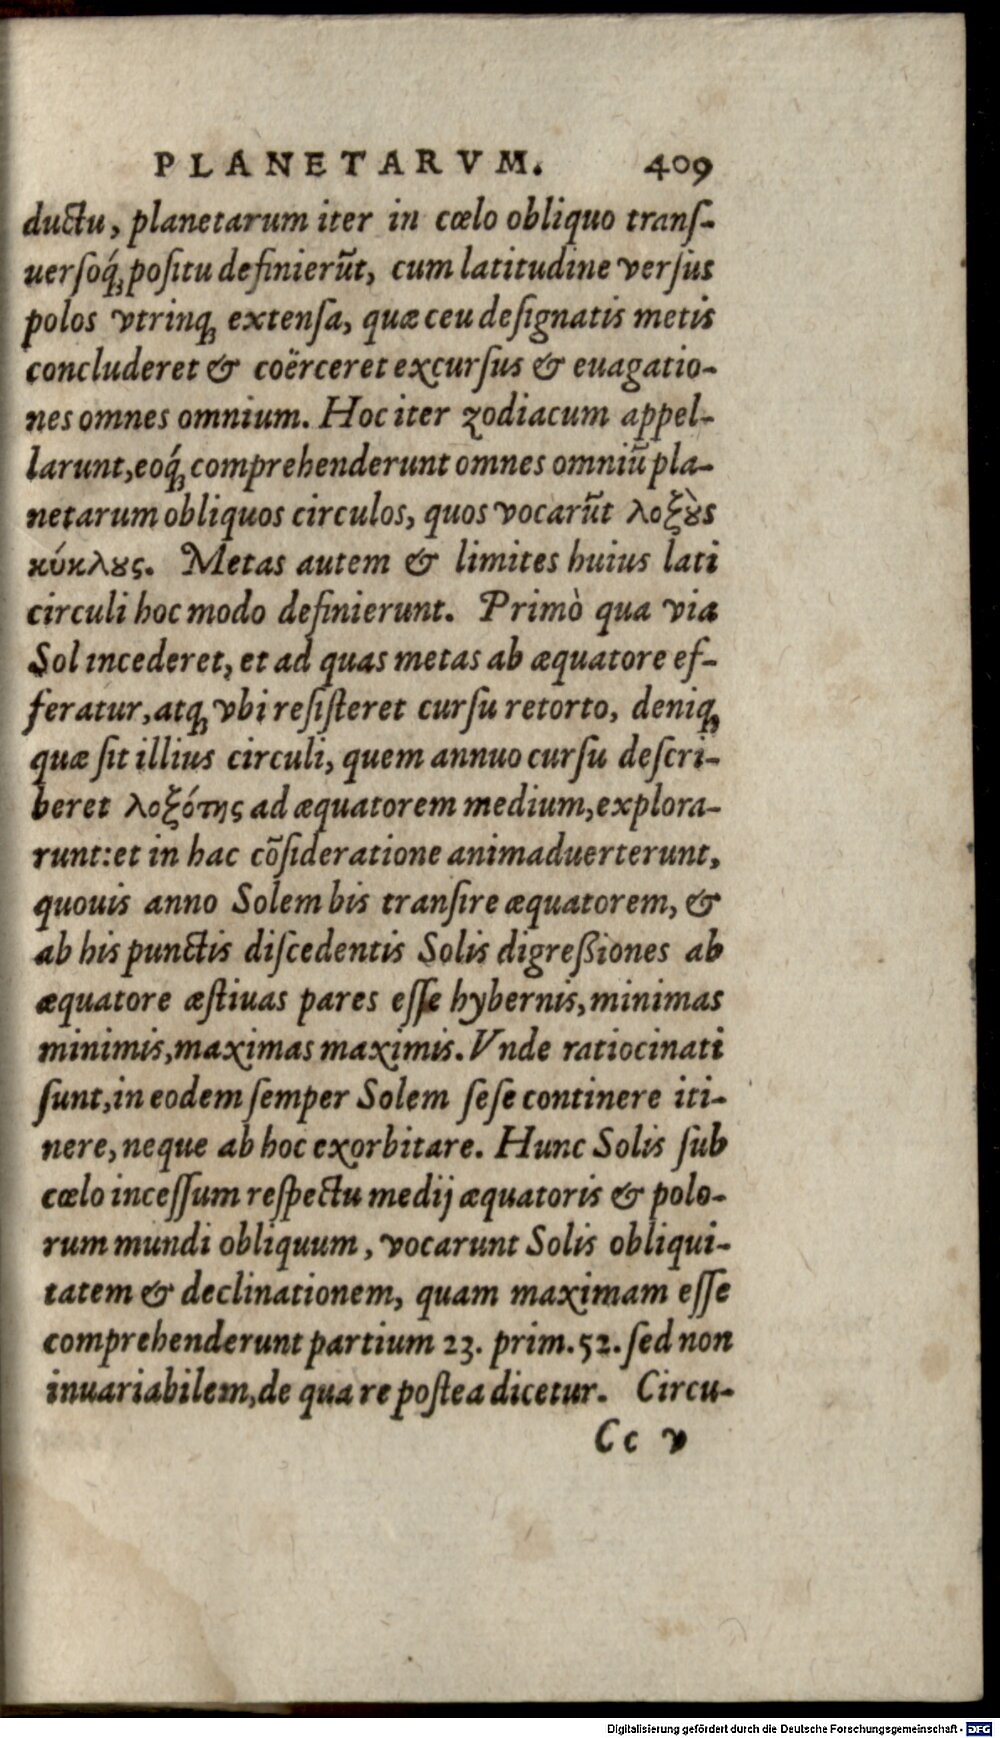 PLANETARVM. 409
ductu, planetarum iter in cœlo obliquo tranſ-
uerſoq́ꝫ poſitu definierūt, cum latitudine verſus
polos vtrinqꝫ extenſa, quæ ceu deſignatis metis
concluderet & coërceret excurſus & euagatio-
nes omnes omnium. Hoc iter zodiacum appel-
larunt, eoq́ꝫ comprehenderunt omnes omniū pla-
netarum obliquos circulos, quos vocarūt λοξȣ̀s
κύκλȣς. Metas autem & limites huius lati
circuli hoc modo definierunt. Primò qua via
Sol incederet, et ad quas metas ab æquatore ef-
feratur, atqꝫ vbi reſiſteret curſu retorto, deniqꝫ
quæ ſit illius circuli, quem annuo curſu deſcri-
beret λοξότης ad æquatorem medium, explora-
runt: et in hac cōſideratione animaduerterunt,
quouis anno Solem bis tranſire æquatorem, &
ab his punctis diſcedentis Solis digreßiones ab
æquatore æſtiuas pares eſſe hybernis, minimas
minimis, maximas maximis. Vnde ratiocinati
ſunt, in eodem ſemper Solem ſeſe continere iti-
nere, neque ab hoc exorbitare. Hunc Solis ſub
cœlo inceſſum reſpectu medij æquatoris & polo-
rum mundi obliquum, vocarunt Solis obliqui-
tatem & declinationem, quam maximam eſſe
comprehenderunt partium 23. prim. 52. ſed non
inuariabilem, de qua re poſtea dicetur. Circu-
Cc v
Digitalisierung gefördert durch die Deutsche Forschungsgemeinschaft - DFG